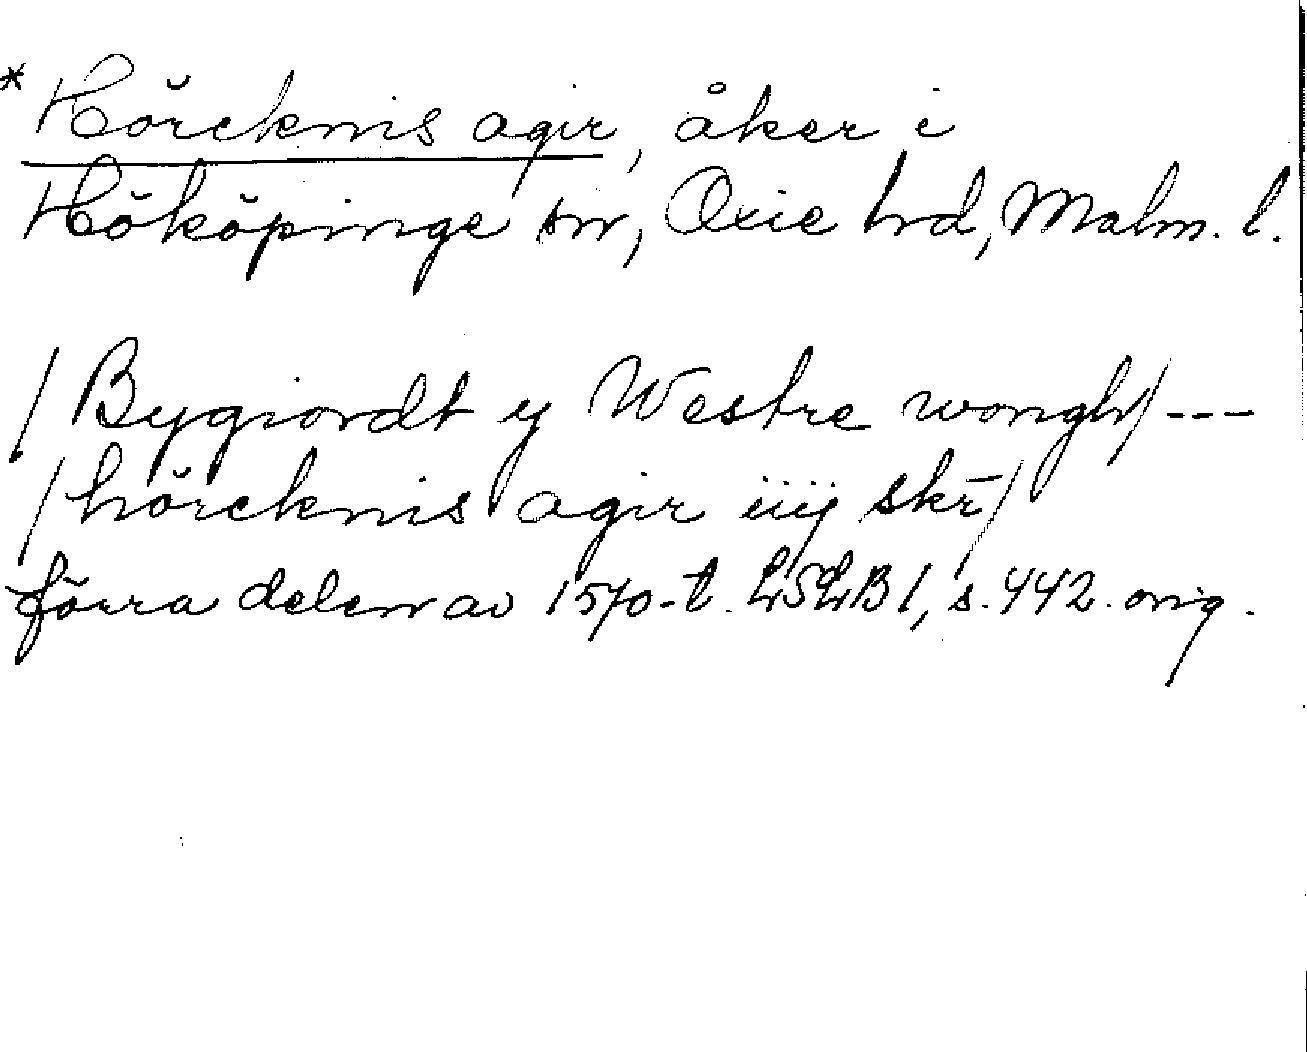 * Hörcknis agir, åker i
Hököpinge sn, Oxie hd, Malm. l.
/Bygiordt y Westre wongh/ ---
/hörcknis agir iiij skr̄/
förra delen av 1570-t. LSLB 1, s. 442. orig.